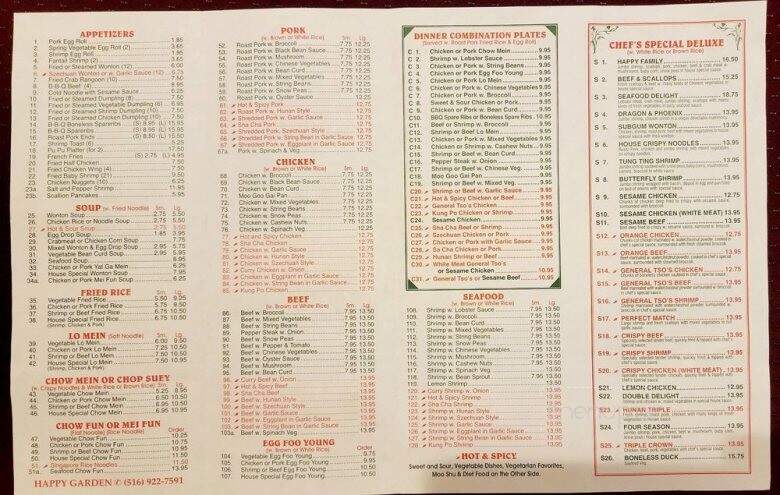 APPETIZERS
1. Pork Egg Roll 1.85
2. Spring Vegetable Egg Roll (2) 3.65
3. Shrimp Egg Roll 1.95
4. Fantail Shrimp (2) 3.65
5. Fried or Steamed Wonton (12)
6. Szechuan Wonton or w. Garlic Sauce (12) 6.75
7. Fried Crab Rangoon (10) 7.50
8. B-B-Q Beef (4) 8.95
9. Cold Noodle with Sesame Sauce 6.25
10. Fried or Steamed Dumpling (8) 7.50
11. Fried or Steamed Vegetable Dumpling (8) 6.95
12. Fried or Steamed Shrimp Dumpling (10) 7.50
13. Fried or Steamed Chicken Dumpling (10) 7.50
14. B-B-Q Boneless Spareribs (S) 8.95 (L) 15.95
15. B-B-Q Spareribs (S) 8.95 (L) 15.95
16. Roast Pork Ends (S) 8.50 (L) 15.50
17. Shrimp Toast (6) 5.25
18. Pu Pu Platter (for 2) 17.50
19. French Fries (S) 2.75 (L) 4.95
20. Fried Half Chicken 7.50
21. Fried Chicken Wing (4) 7.50
22. Fried Baby Shrimp (21) 9.50
23. Chicken Nuggets (10) 6.25
23a. Salt and Pepper Shrimp 11.95
23b. Scallion Pancakes 5.95
SOUP (w. Fried Noodle) Sm. Lg.
25. Wonton Soup 2.75 5.50
26. Chicken Rice or Noodle Soup 2.75 5.50
27. Hot & Sour Soup 2.75 5.50
28. Egg Drop Soup 1.85 3.95
29. Crabmeat or Chicken Corn Soup 7.75
30. Mixed Wonton & Egg Drop Soup 2.95 5.75
31. Vegetable Bean Curd Soup 2.95 5.95
32. Seafood Soup 8.95
33. Chicken or Pork Yat Ga Mein 6.25
34. House Special Wonton Soup 7.95
34a. Chicken or Pork Mei Fun Soup 6.25
FRIED RICE Sm. Lg.
35. Vegetable Fried Rice 5.50 9.25
36. Chicken or Pork Fried Rice 5.75 9.50
37. Shrimp or Beef Fried Rice 6.75 10.50
38. House Special Fried Rice 6.75 10.50
(Shrimp, Chicken & Pork)
LO MEIN (Soft Noodle) Sm. Lg.
39. Vegetable Lo Mein 6.00 9.50
40. Chicken or Pork Lo Mein 7.25 10.50
41. Shrimp or Beef Lo Mein 7.50 10.50
42. House Special Lo Mein 7.50 10.95
(Shrimp, Chicken & Pork)
CHOW MEIN OR CHOP SUEY
(w. Crispy Noodles & White Rice or Brown Rice) Sm. Lg.
43. Vegetable Chow Mein 5.25 8.95
44. Chicken or Pork Chow Mein 6.25 9.95
45. Shrimp or Beef Chow Mein 6.95 10.50
46. House Special Chow Mein 6.95 10.50
CHOW FUN OR MEI FUN
(Flat Noodle) (Rice Noodle) Order
47. Vegetable Chow Fun 10.25
48. Chicken or Pork Chow Fun 10.75
49. Shrimp or Beef Chow Fun 10.95
50. House Special Chow Fun 10.95
51. Singapore Rice Noodles 11.50
51a. Seafood Chow Fun 13.95
HAPPY GARDEN (516) 922-7591
PORK
(w. Brown or White Rice) Sm. Lg.
52. Roast Pork w. Broccoli 7.75 12.25
53. Roast Pork w. Black Bean Sauce 7.75 12.25
54. Roast Pork w. Mushroom 7.75 12.25
55. Roast Pork w. Chinese Vegetables 7.75 12.25
56. Roast Pork w. Bean Curd 7.75 12.25
57. Roast Pork w. Mixed Vegetables 7.75 12.25
58. Roast Pork w. String Beans 7.75 12.25
59. Roast Pork w. Snow Peas 7.75 12.25
60. Roast Pork w. Oyster Sauce 7.75 12.25
61. Hot & Spicy Pork 12.75
62. Roast Pork w. Hunan Style 12.75
63. Shredded Pork w. Garlic Sauce 12.75
64. Sha Cha Pork 12.75
65. Shredded Pork, Szechuan Style 12.75
66. Shredded Pork w. String Bean in Garlic Sauce 12.75
67. Shredded Pork w. Eggplant in Garlic Sauce 12.75
67a. Pork w. Spinach & Veg. 12.25
CHICKEN
(w. Brown or White Rice) Sm. Lg.
68. Chicken w. Broccoli 7.75 12.50
69. Chicken w. Black Bean Sauce 7.75 12.50
70. Chicken w. Bean Curd 7.75 12.50
71. Moo Goo Gai Pan 7.75 12.50
72. Chicken w. Mixed Vegetables 7.75 12.50
73. Chicken w. String Beans 7.75 12.50
74. Chicken w. Snow Peas 7.75 12.50
75. Chicken w. Cashew Nuts 7.75 12.50
76. Chicken w. Spinach Veg. 12.25
77. Hot and Spicy Chicken 12.95
78. Sha Cha Chicken 12.95
79. Chicken w. Garlic Sauce 12.95
80. Chicken w. Hunan Style 12.95
81. Chicken w. Szechuan Style 12.95
82. Curry Chicken w. Onion 12.95
83. Chicken w. Eggplant in Garlic Sauce 12.95
84. Chicken w. String Bean in Garlic Sauce 12.95
85. Kung Po Chicken 12.95
BEEF
(w. Brown or White Rice) Sm. Lg.
86. Beef w. Broccoli 7.95 13.50
87. Beef w. Mixed Vegetables 7.95 13.50
88. Beef w. String Beans 7.95 13.50
89. Pepper Steak w. Onion 7.95 13.50
90. Beef w. Snow Peas 7.95 13.50
91. Beef w. Pepper & Tomato 7.95 13.50
92. Beef w. Chinese Vegetables 7.95 13.50
93. Beef w. Oyster Sauce 7.95 13.50
94. Beef w. Mushroom 7.95 13.50
95. Beef w. Bean Curd 7.95 13.50
96. Curry Beef w. Onion 13.95
97. Hot & Spicy Beef 13.95
98. Sha Cha Beef 13.95
99. Beef w. Hunan Style 13.95
100. Beef w. Szechuan Style 13.95
101. Beef w. Garlic Sauce 13.95
102. Beef w. Eggplant in Garlic Sauce 13.95
103. Beef w. String Bean in Garlic Sauce 13.95
103a. Beef w. Spinach Veg. 13.50
EGG FOO YOUNG
(w. Brown or White Rice) Order
104. Vegetable Egg Foo Young 9.95
105. Chicken or Pork Egg Foo Young 9.95
106. Shrimp or Beef Egg Foo Young 10.50
107. House Special Egg Foo Young 10.50
DINNER COMBINATION PLATES
(Served w. Roast Pork Fried Rice & Egg Roll)
C 1. Chicken or Pork Chow Mein 9.95
C 2. Shrimp w. Lobster Sauce 9.95
C 3. Chicken or Pork w. String Beans 9.95
C 4. Chicken or Pork Egg Foo Young 9.95
C 5. Chicken or Pork Lo Mein 9.95
C 6. Chicken or Pork w. Chinese Vegetables 9.95
C 7. Chicken or Pork w. Broccoli 9.95
C 8. Sweet & Sour Chicken or Pork 9.95
C 9. Chicken or Pork w. Bean Curd 9.95
C10. BBQ Spare Ribs or Boneless Spare Ribs 10.95
C11. Beef or Shrimp w. Broccoli 9.95
C12. Shrimp or Beef Lo Mein 9.95
C13. Chicken or Pork w. Mixed Vegetables 9.95
C14. Chicken or Shrimp w. Cashew Nuts 9.95
C15. Shrimp or Beef w. Bean Curd 9.95
C16. Pepper Steak w. Onion 9.95
C17. Shrimp or Beef w. Chinese Veg. 9.95
C18. Moo Goo Gai Pan 9.95
C19. Shrimp or Beef w. Mixed Veg. 9.95
C20. Shrimp or Beef w. Garlic Sauce 9.95
C21. Hot & Spicy Chicken or Beef 9.95
C22. General Tso's Chicken 9.95
C23. Kung Po Chicken or Shrimp 9.95
C24. Sesame Chicken 9.95
C25. Sha Cha Beef or Shrimp 9.95
C26. Szechuan Chicken or Pork 9.95
C27. Chicken or Pork with Garlic Sauce 9.95
C28. Sha Cha Chicken or Pork 9.95
C29. Hunan Shrimp or Beef 9.95
C30. White Meat General Tso's
or Sesame Chicken 10.95
C31. General Tso's or Sesame Beef 10.95
SEAFOOD
(w. Brown or White Rice) Sm. Lg.
108. Shrimp w. Lobster Sauce 7.95 13.50
109. Shrimp w. Broccoli 7.95 13.50
110. Shrimp w. Bean Curd 7.95 13.50
111. Shrimp w. Mixed Vegetables 7.95 13.50
112. Shrimp w. String Beans 7.95 13.50
113. Shrimp w. Snow Peas 7.95 13.50
114. Shrimp w. Chinese Vegetables 7.95 13.50
115. Shrimp w. Mushroom 7.95 13.50
116. Shrimp w. Cashew Nuts 7.95 13.50
117. Shrimp w. Spinach Veg. 13.50
118. Shrimp w. Bean Sprout 7.95 13.50
119. Lemon Shrimp 13.50
120. Curry Shrimp w. Onion 13.95
121. Hot & Spicy Shrimp 13.95
122. Sha Cha Shrimp 13.95
123. Shrimp w. Hunan Style 13.95
124. Shrimp w. Szechuan Style 13.95
125. Shrimp w. Garlic Sauce 13.95
126. Shrimp w. Eggplant in Garlic Sauce 13.95
127. Shrimp w. String Bean in Garlic Sauce 13.95
128. Kung Po Shrimp 13.95
HOT & SPICY
Sweet and Sour, Vegetable Dishes, Vegetarian Favorites,
Moo Shu & Diet Food on the Other Side.
CHEF'S SPECIAL DELUXE
(w. White Rice or Brown Rice)
S 1. HAPPY FAMILY 16.50
S 2. BEEF & SCALLOPS 15.25
S 3. SEAFOOD DELIGHT 18.75
S 4. DRAGON & PHOENIX 13.95
S 5. SUBGUM WONTON 13.95
S 6. HOUSE CRISPY NOODLES 13.95
S 7. TUNG TING SHRIMP 13.95
S 8. BUTTERFLY SHRIMP 13.95
S 9. SESAME CHICKEN 12.75
S10. SESAME CHICKEN (WHITE MEAT) 13.95
S11. SESAME BEEF 13.95
S12. ORANGE CHICKEN 12.75
S13. ORANGE BEEF 13.95
S14. GENERAL TSO'S CHICKEN 12.75
S15. GENERAL TSO'S BEEF 13.95
S16. GENERAL TSO'S SHRIMP 13.95
S17. PERFECT MATCH 13.95
S18. CRISPY BEEF 13.95
S19. CRISPY SHRIMP 13.95
S20. CRISPY CHICKEN (WHITE MEAT) 13.95
S21. LEMON CHICKEN 12.95
S22. DOUBLE DELIGHT 13.95
S23. HUNAN TRIPLE 13.95
S24. FOUR SEASON 13.95
S25. TRIPLE CROWN 13.95
S26. BONELESS DUCK 15.75